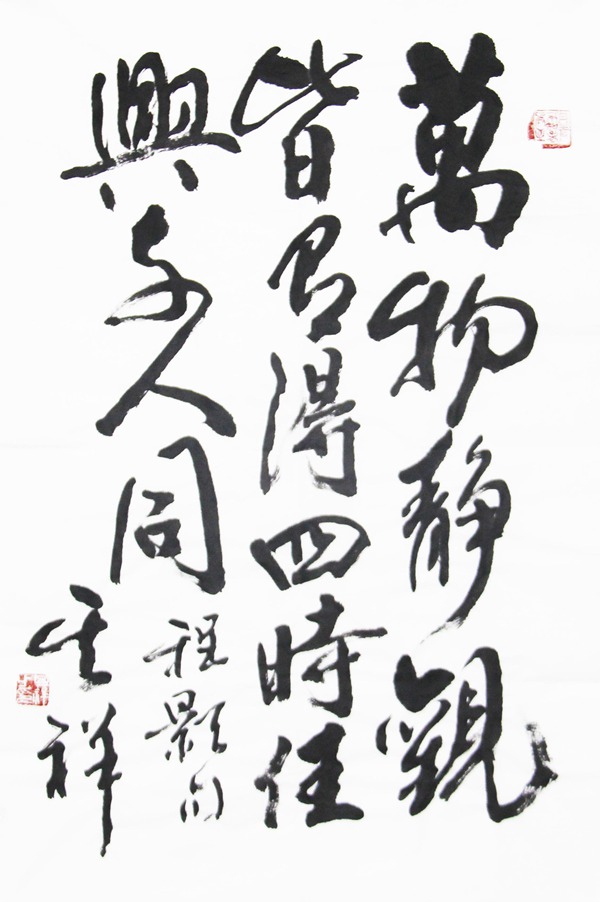 萬物静觀
皆自得四時佳
興与人同
程顥句
祥